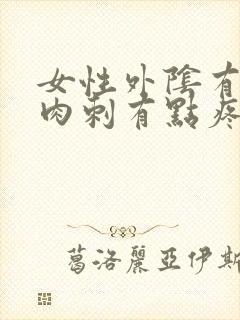 女性外陰有
肉刺有點疼
葛洛麗亞伊斯